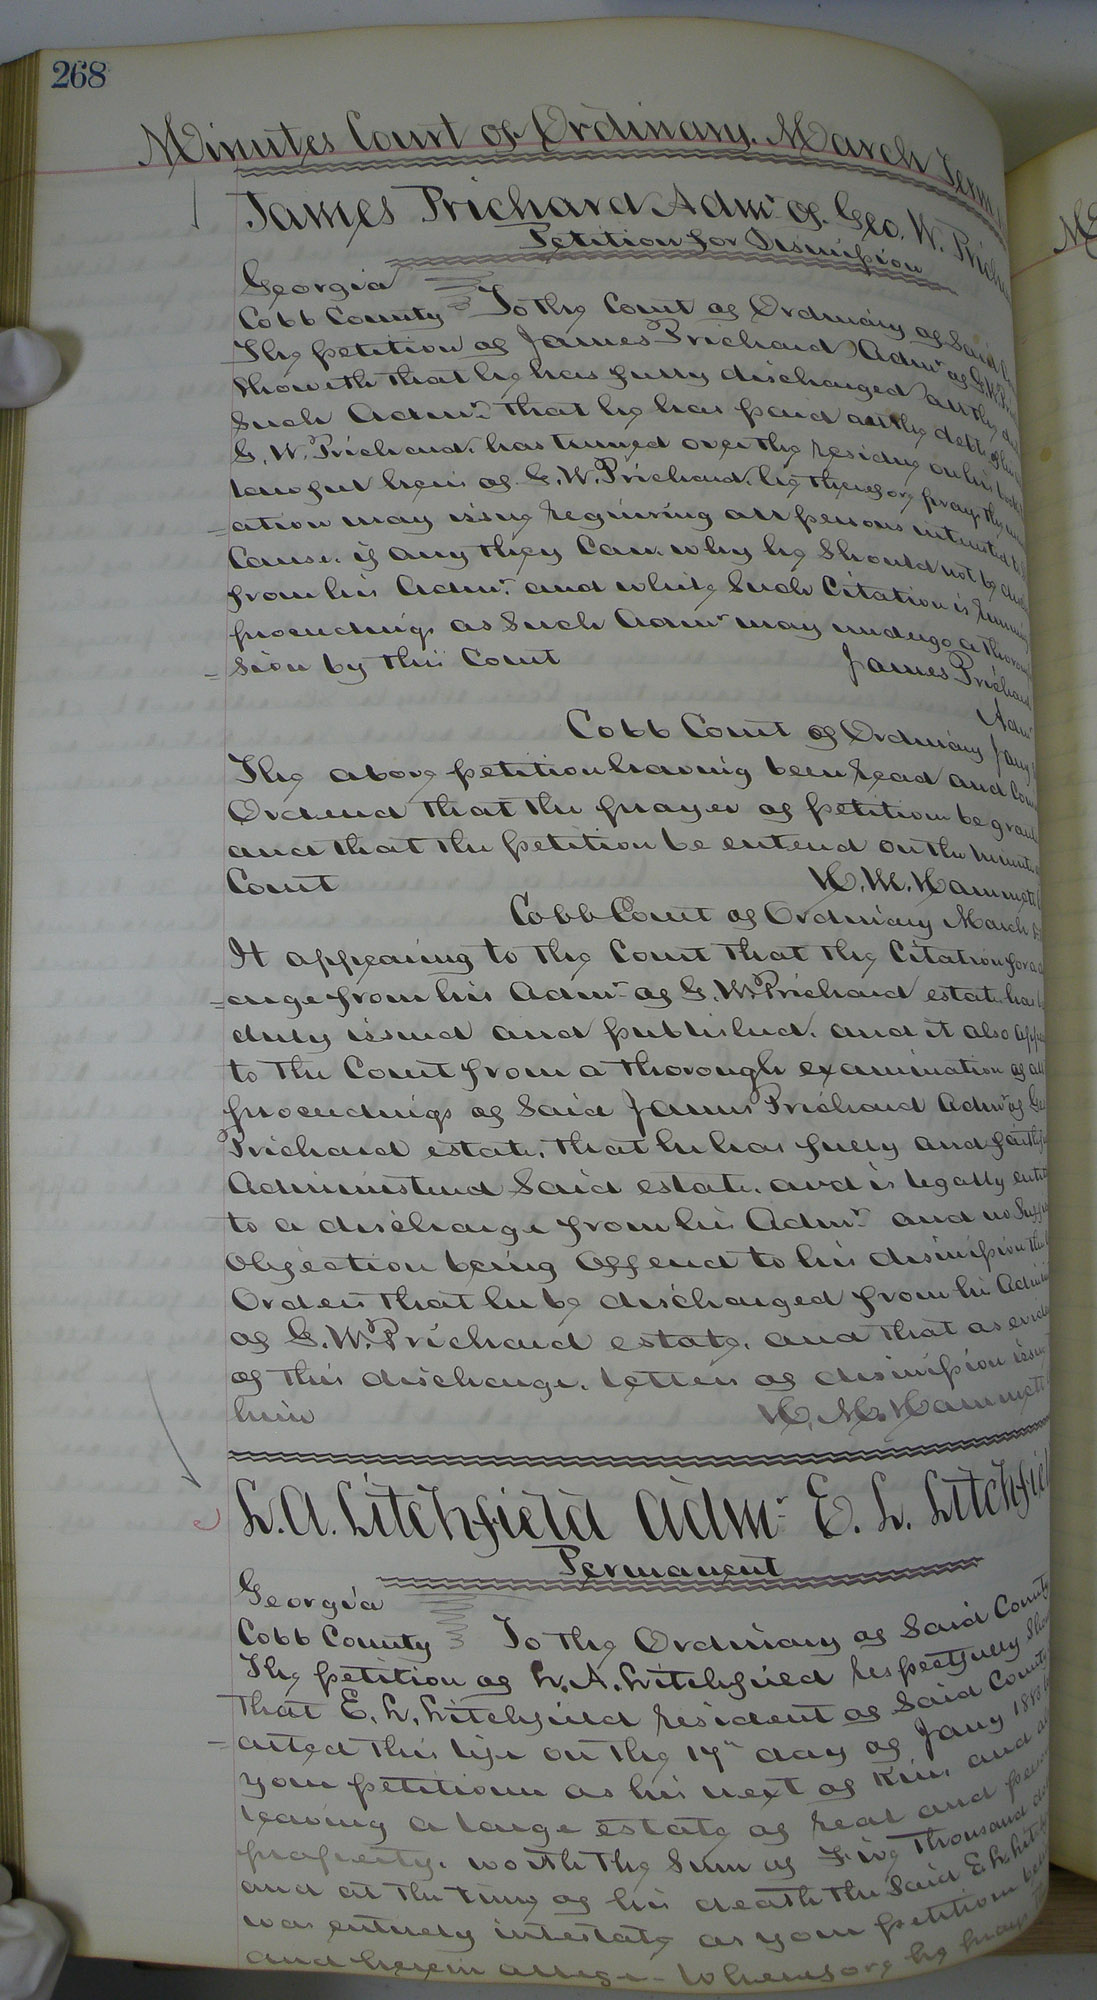 268
Minutes Court of Ordinary. March Term
James Prichard Admr of Geo. W. Prich
Petition for Dismission
Georgia
Cobb County To the Court of Ordinary of Said
The petition of James Prichard Admr of G.W. Pri
Showeth that he has fully discharged all the
Such Admr that he has paid all the debts
G. W. Prichard. has turned over the residue
lawful heirs of G. W. Prichard. he therefore prays
-ation may issue requiring all persons interested
Cause. if any they Can. why he Should not be
from his Admr. and while Such Citation is running
proceedings as Such Admr may undergo a
-sion by this Court James Prichard
Admr
Cobb Court of Ordinary Jany
The above petition having been read and
Ordered that the prayer of petition be
and that the petition be entered on the minutes
Court H. M. Hammett
Cobb Court of Ordinary March
It appearing to the Court that the Citation for
-arge from his Admr of G. W. Prichard estate has
duly issued and published. and it also app
to the Court from a thorough examination of
proceedings of Said James Prichard Admr of
Prichard estate. that he has fully and faith
Administered Said estate. and is legally
to a discharge from his Admr and no
Objection being Offered to his dismission
Orders that he be discharged from his Admin
of G. W. Prichard estate. and that as
of this discharge. letters of dismission issue
him H. M. Hammett
L. A. Litchfield Admr E. L. Litchfiel
Permanent
Georgia
Cobb County To the Ordinary of Said County
The petition of L. A. Litchfield respectfully
that E. L. Litchfield resident of Said County
-arted this life on the 17th day of Jany
your petitioner as his next of Kin, and
leaving a large estate of real and
property. worth the Sum of Five Thousand
and at the time of his death the Said E. L.
was entirely intestate as your petitioner
and herein allege. Wherefore he prays